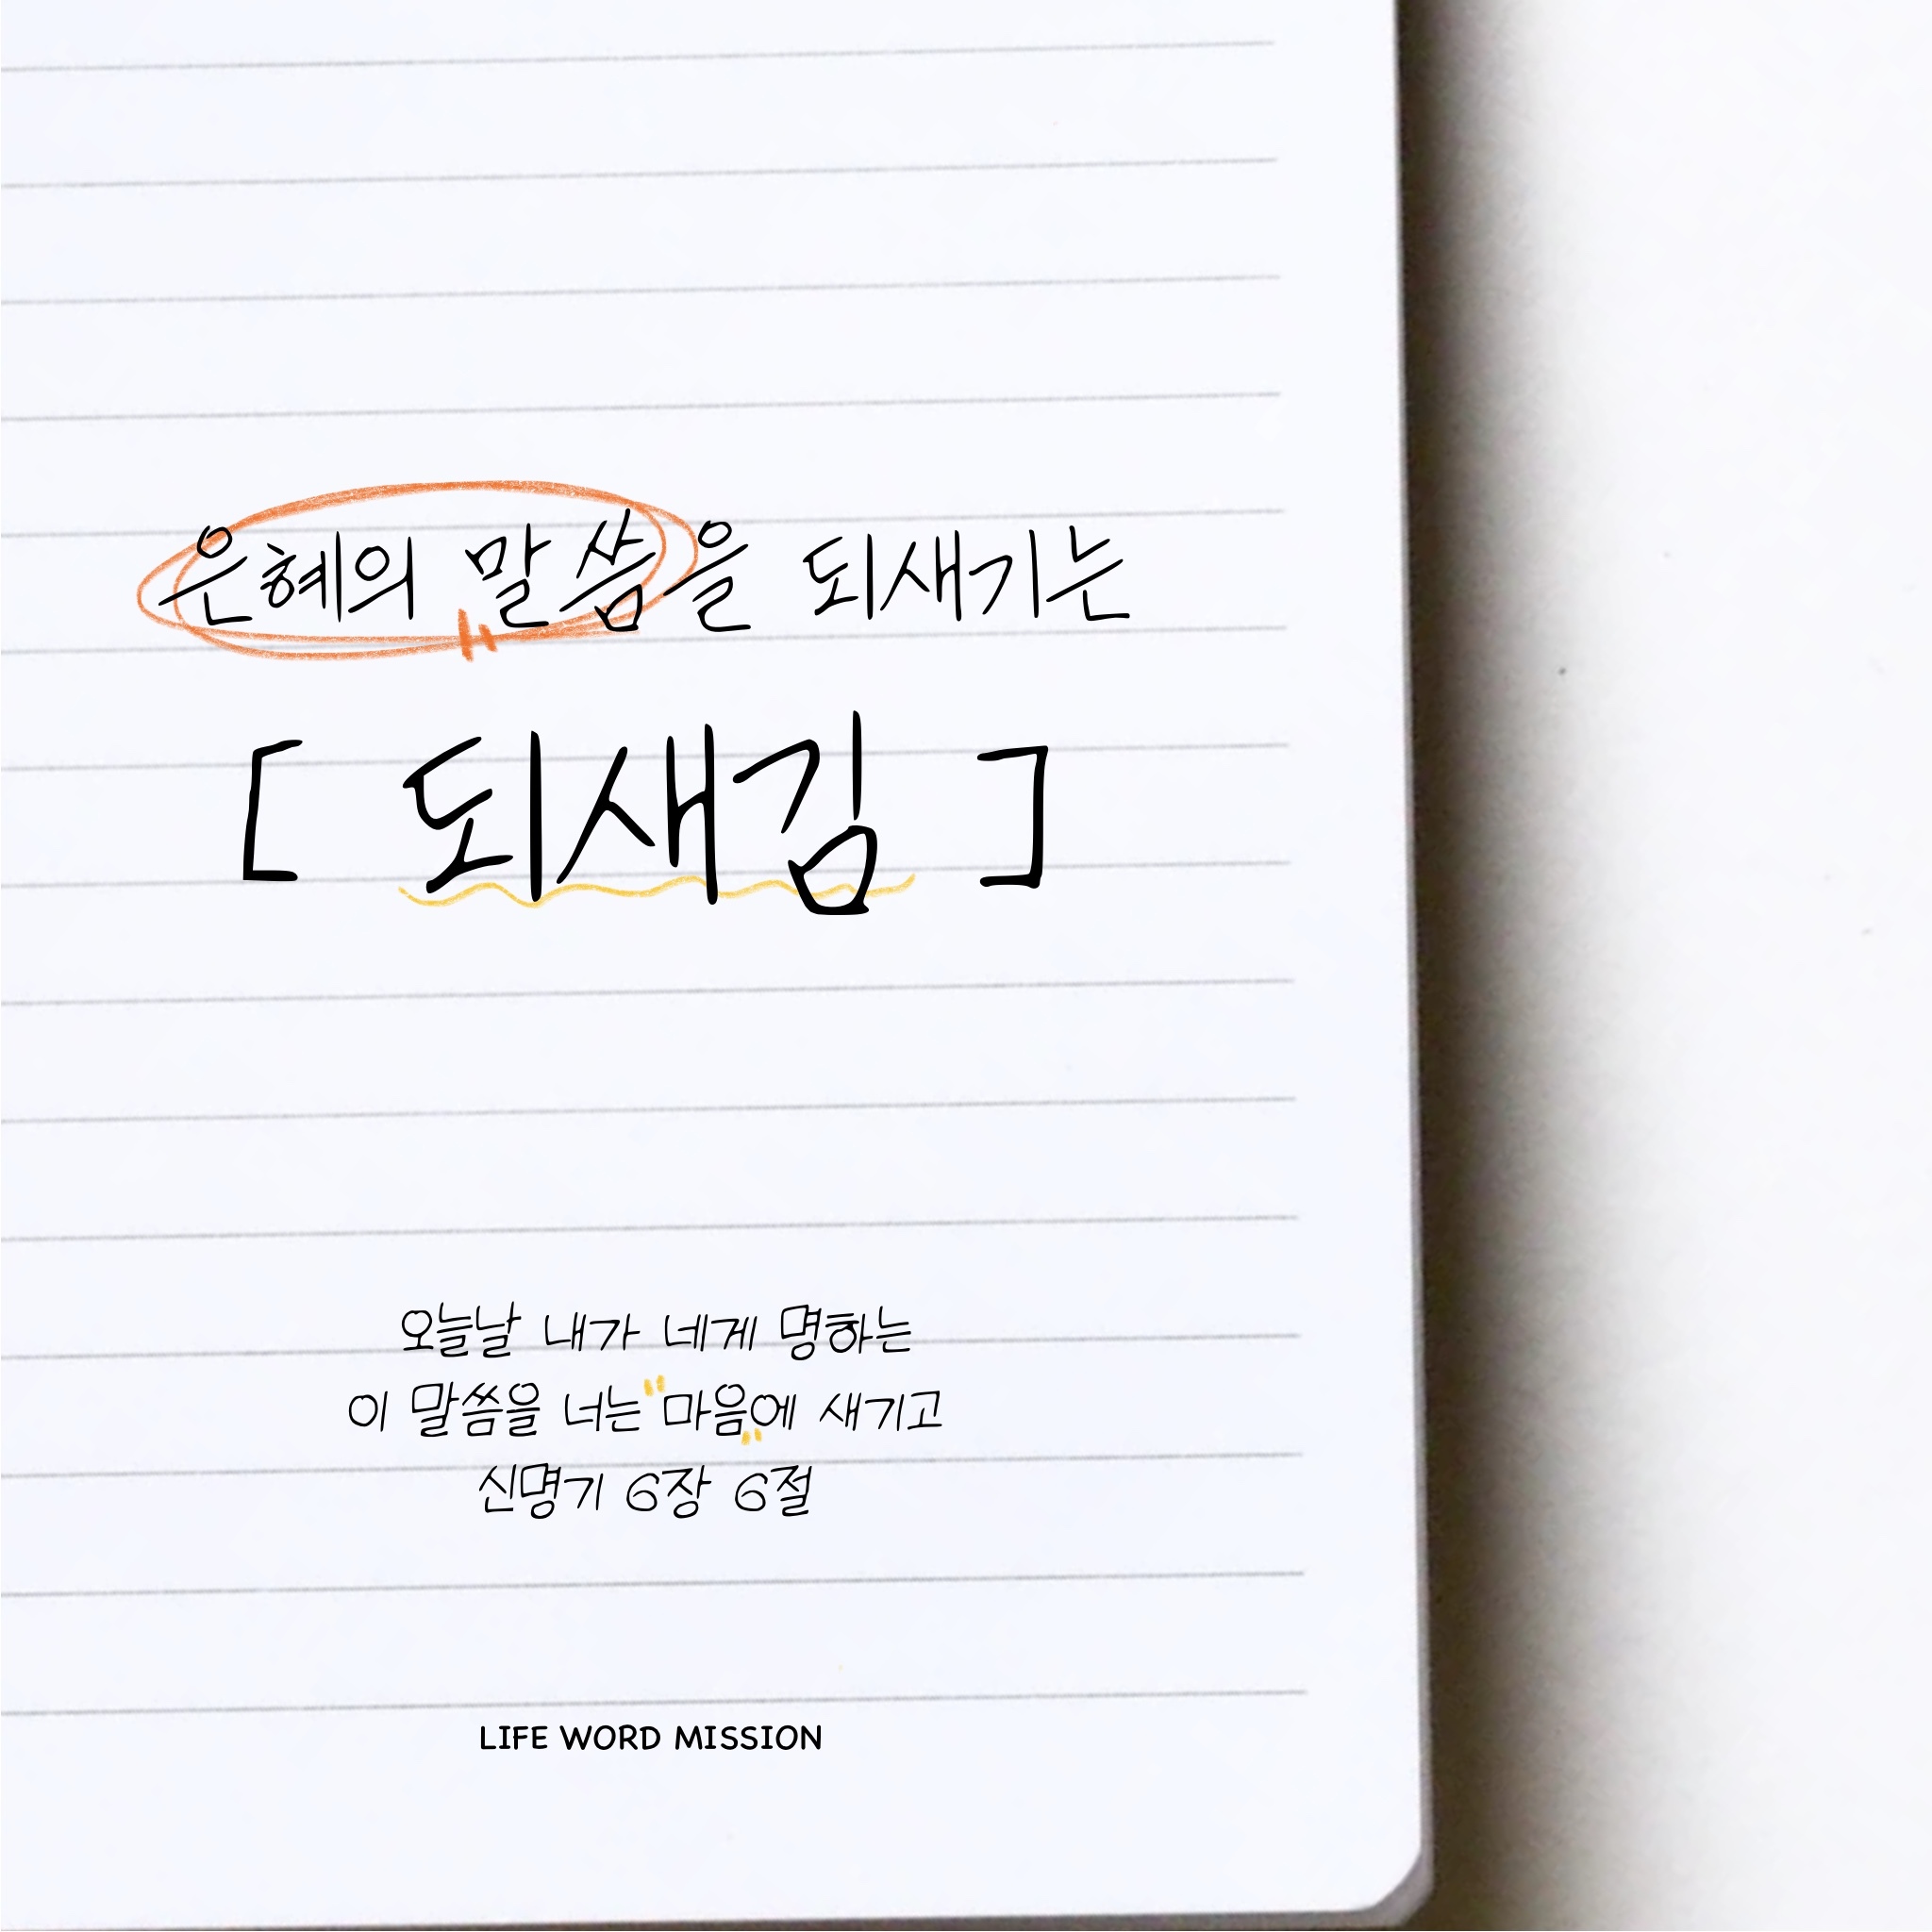 은혜의 말씀을 되새기는
[ 되새김 ]
오늘날 내가 네게 명하는
이 말씀을 너는 "마음"에 새기고
신명기 6장 6절
LIFE WORD MISSION